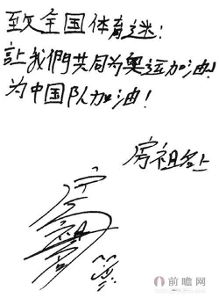 致全国体育迷:
让我們共同为奥运加油!
为中国队加油!
房祖名上
前瞻网